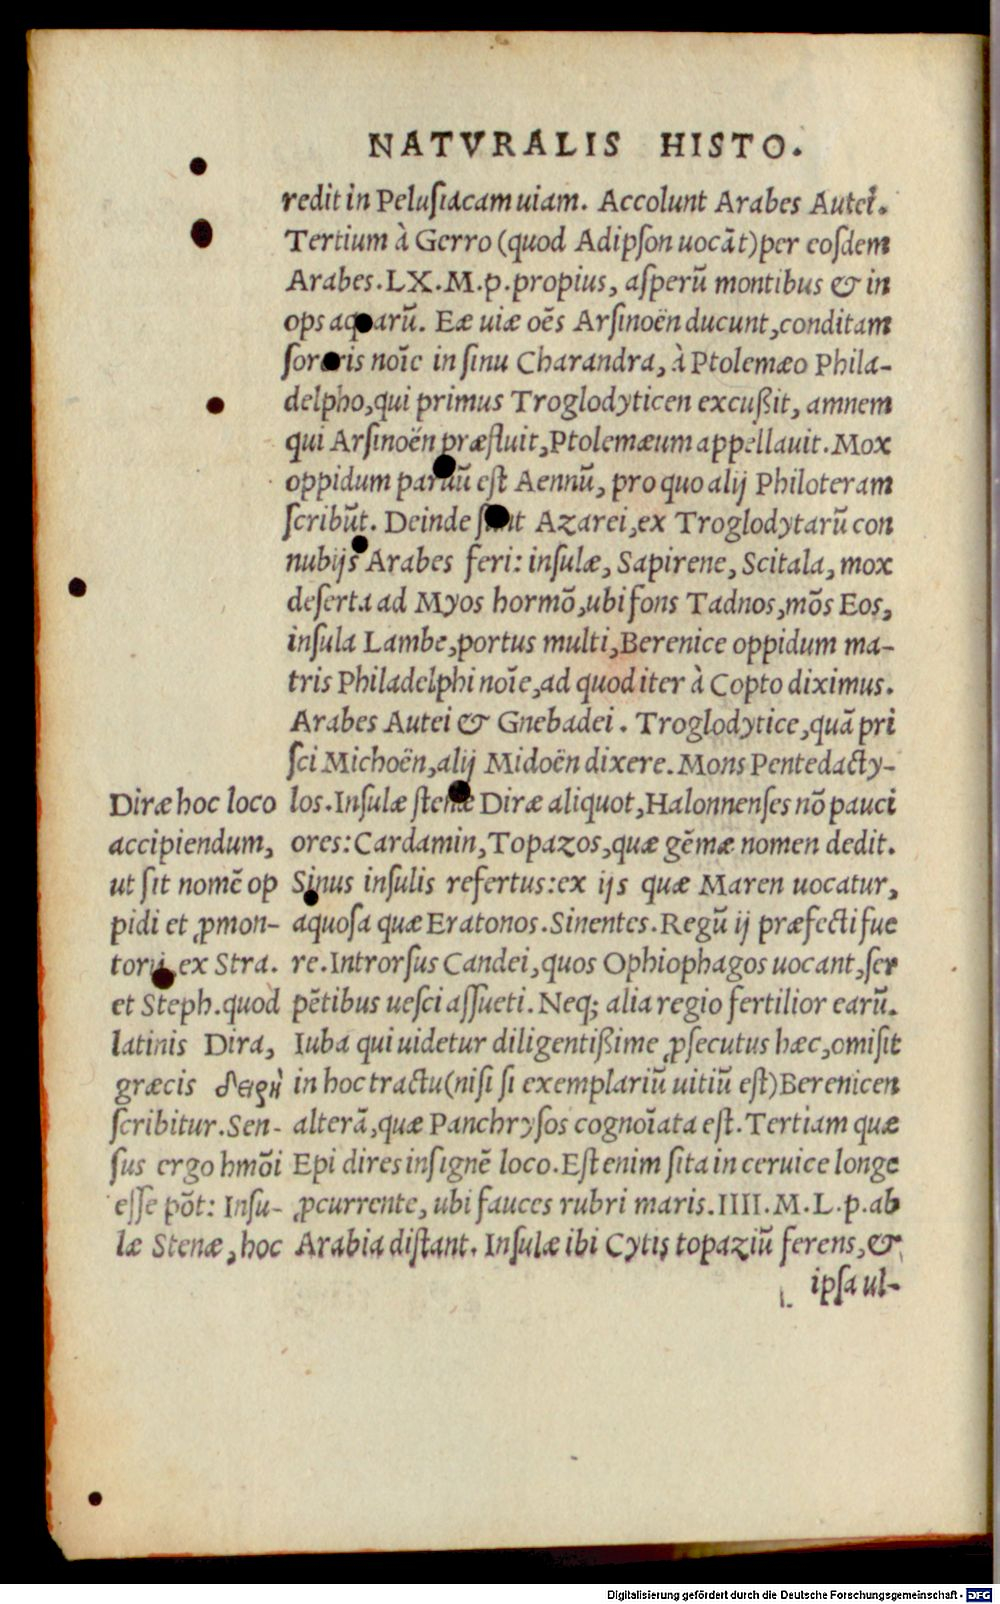 NATVRALIS HISTO.
redit in Pelusiacam uiam. Accolunt Arabes Autei.
Tertium à Gerro (quod Adipson uocãt) per eosdem
Arabes. LX. M. p. propius, asperũ montibus & in
ops aquarũ. Eæ uiæ oẽs Arsinoën ducunt, conditam
sororis noĩe in sinu Charandra, à Ptolemæo Phila-
delpho, qui primus Troglodyticen excußit, amnem
qui Arsinoën præfluit, Ptolemæum appellauit. Mox
oppidum paruũ est Aennũ, pro quo alij Philoteram
scribũt. Deinde sunt Azarei, ex Troglodytarũ con
nubijs Arabes feri: insulæ, Sapirene, Scitala, mox
deserta ad Myos hormõ, ubi fons Tadnos, mõs Eos,
insula Lambe, portus multi, Berenice oppidum ma-
tris Philadelphi noĩe, ad quod iter à Copto diximus.
Arabes Autei & Gnebadei. Troglodytice, quã pri
sci Michoën, alij Midoën dixere. Mons Pentedacty-
los. Insulæ stenæ Diræ aliquot, Halonnenses nõ pauci
ores: Cardamin, Topazos, quæ gẽmæ nomen dedit.
Sinus insulis refertus: ex ijs quæ Maren uocatur,
aquosa quæ Eratonos. Sinentes. Regũ ij præfecti fue
re. Introrsus Candei, quos Ophiophagos uocant, ser
pẽtibus uesci assueti. Neq; alia regio fertilior earũ.
Iuba qui uidetur diligentißime ꝓsecutus hæc, omisit
in hoc tractu (nisi si exemplariũ uitiũ est) Berenicen
alterã, quæ Panchrysos cognoĩata est. Tertiam quæ
Epi dires insignẽ loco. Est enim sita in ceruice longe
ꝓcurrente, ubi fauces rubri maris. IIII. M. L. p. ab
Arabia distant. Insulæ ibi Cytis topaziũ ferens, &
ipsa ul-
Diræ hoc loco
accipiendum,
ut sit nomẽ op
pidi et ꝓmon-
torij ex Stra.
et Steph. quod
latinis Dira,
græcis δειρὴ
scribitur. Sen-
sus ergo hmõi
esse põt: Insu-
læ Stenæ, hoc
Digitalisierung gefördert durch die Deutsche Forschungsgemeinschaft - DFG